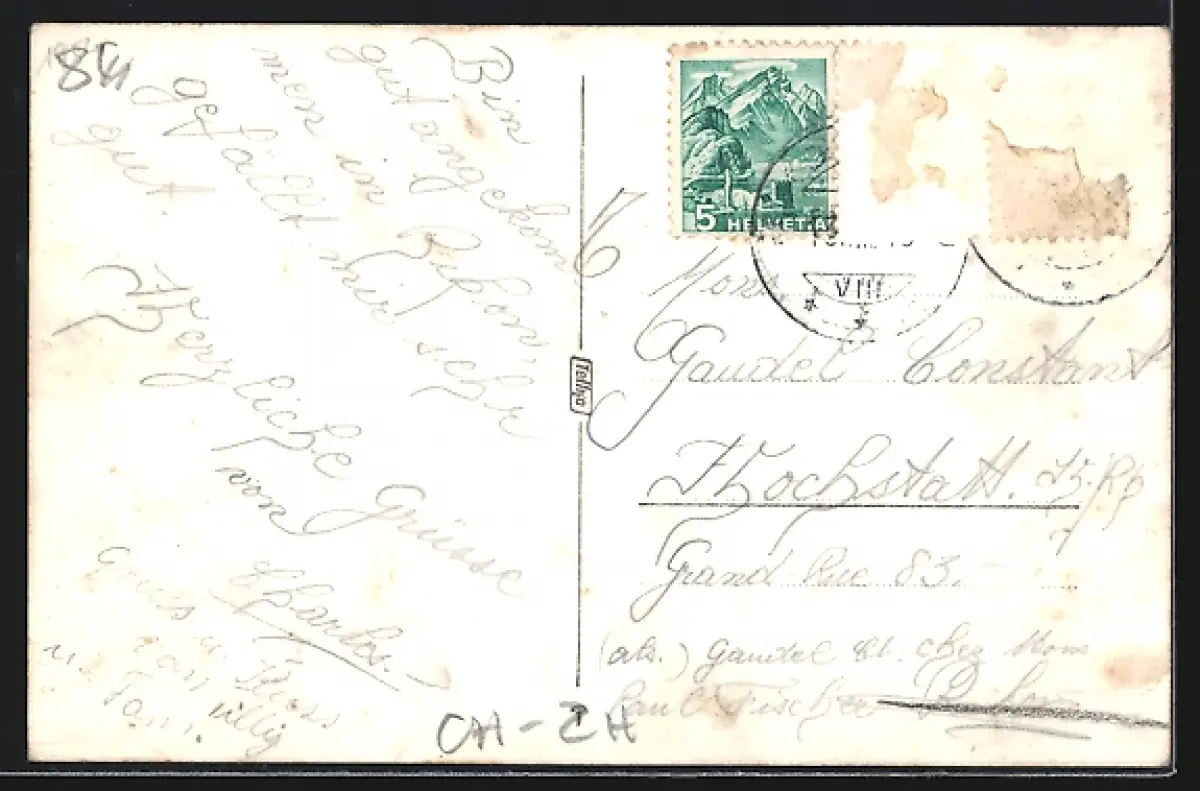 Bin
gut angekom
men in Rikon,
gefällt mir sehr
gut.
Herzliche Grüsse
von
Charles.
Gruss u. Kuss
von Willy
u. Fam.
5 HELVETIA
VIII
Tellko
Mons.
Gaudel Constant
Hochstatt. H.-Rh
Grand Rue 83.-
(abs.) Gaudel Ch. chez Mons
Paul Fischer Rikon
CH-ZH